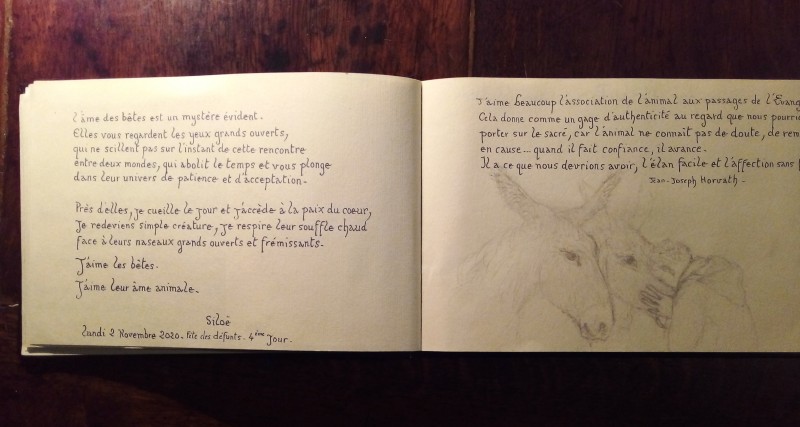 l'âme des bêtes est un mystère évident.
Elles vous regardent les yeux grands ouverts,
qui ne scillent pas sur l'instant de cette rencontre
entre deux mondes, qui abolit le temps et vous plonge
dans leur univers de patience et d'acceptation.
Près d'elles, je cueille le jour et j'accède à la paix du coeur,
Je redeviens simple créature, je respire leur souffle chaud
face à leurs naseaux grands ouverts et frémissants.
J'aime les bêtes.
J'aime leur âme animale.
Siloë
lundi 2 Novembre 2020. Fête des défunts. 4ème Jour.
J'aime beaucoup l'association de l'animal aux passages de l'Evang
Cela donne comme un gage d'authenticité au regard que nous pourri
porter sur le sacré, car l'animal ne connaît pas de doute, de rem
en cause... quand il fait confiance, il avance.
Il a ce que nous devrions avoir, l'élan facile et l'affection sans
Jean-Joseph Horvath.